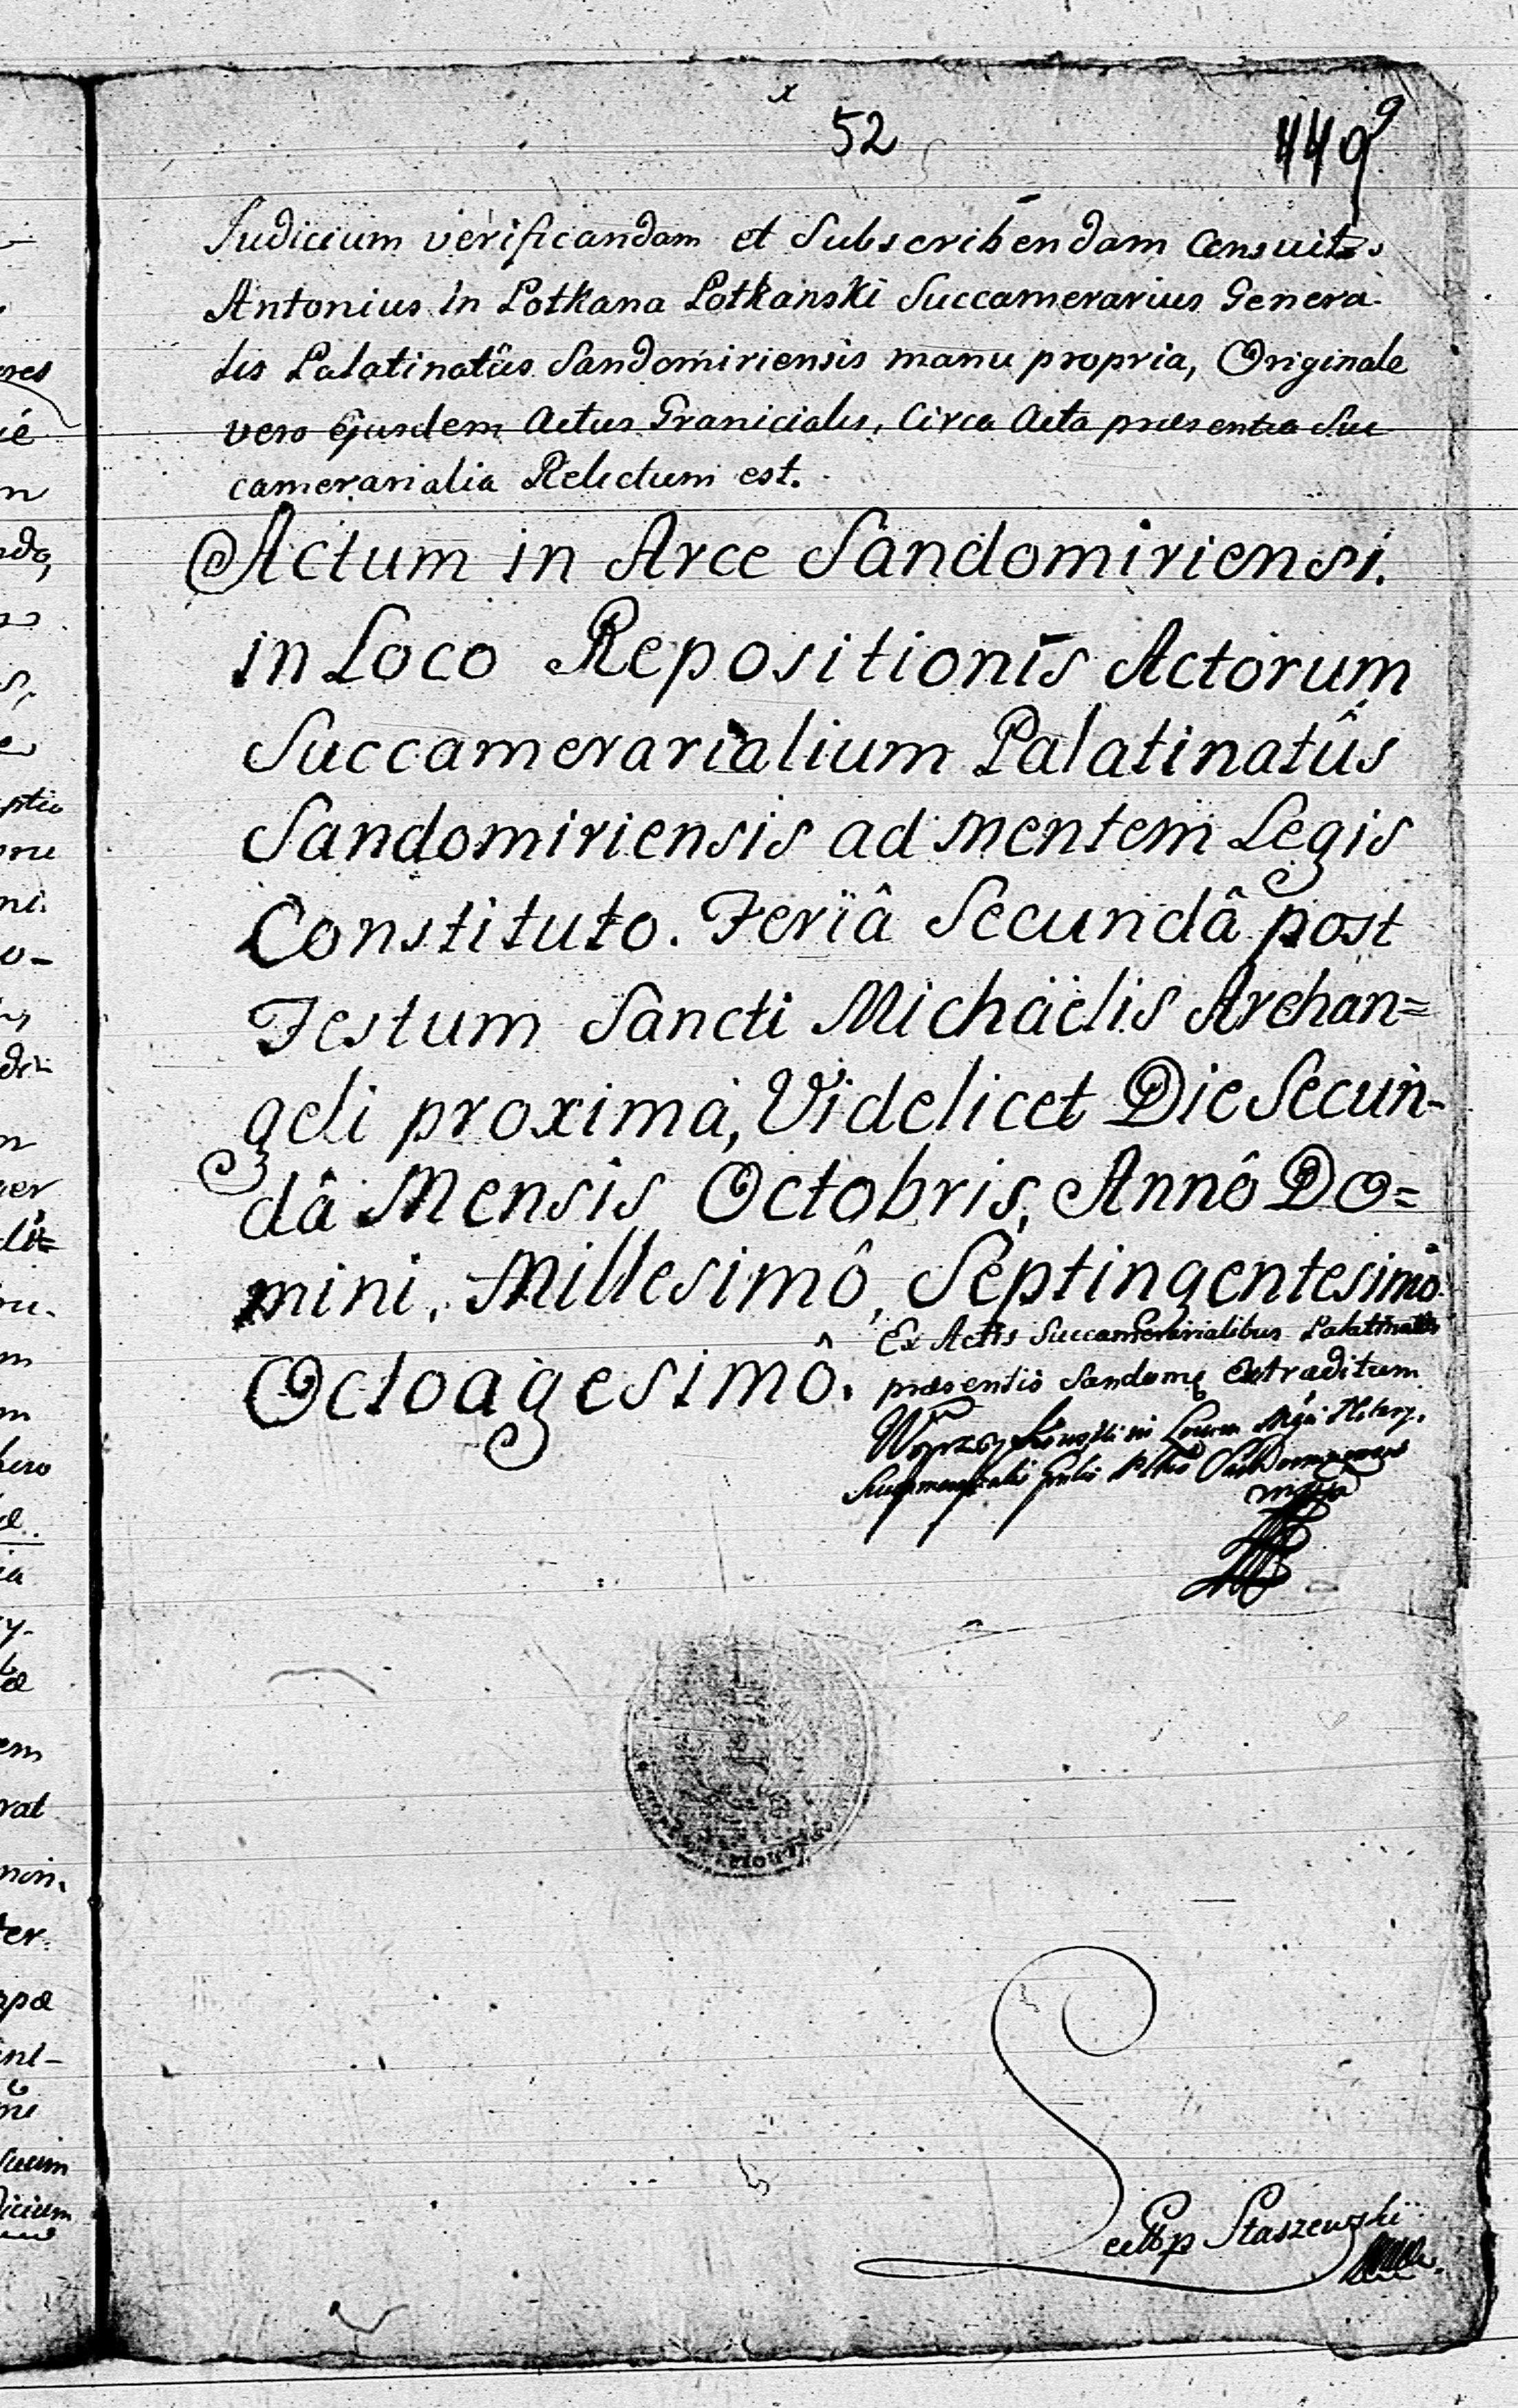 x
52
449
Judicium verificandam et Subscribendam Censuit
Antonius in Potkana Potkanski Succamerarius Genera-
lis Palatinatûs Sandomiriensis manu propria, Originale
vero Ejusdem Actus Granicialis, Circa Acta præsentia Suc
camerarialia Relictum est.
Actum in Arce Sandomiriensi.
in Loco Repositionis Actorum
Succamerarialium Palatinatûs
Sandomiriensis ad mentem Legis
Constituto. Feriâ Secundâ post
Festum Sancti Michaëlis Archan=
geli proxima, Videlicet Die Secun-
dâ Mensis Octobris, Annô Do=
mini, Millesimô, Septingentesimô
Octoagesimô.
Ex Actis Succamerarialibus Palatinatûs
præsentis Sandom: Extraditum
Sandomiriensis
mppa
Staszewski